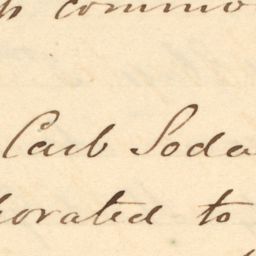 commo
Carb Soda
orated to